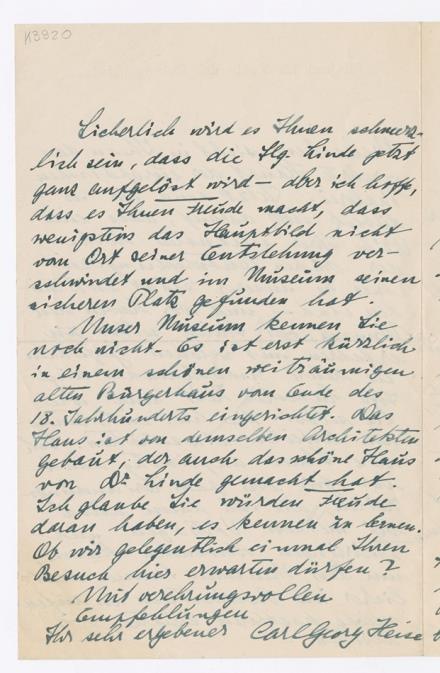 K3820
Sicherlich wird es Ihnen schmerz-
lich sein, dass die Slg. Linde jetzt
ganz aufgelöst wird – aber ich hoffe,
dass es Ihnen Freude macht, dass
wenigstens das Hauptbild nicht
vom Ort seiner Entstehung ver-
schwindet und im Museum seinen
sicheren Platz gefunden hat.
Unser Museum kennen Sie
noch nicht. Es ist erst kürzlich
in einem schönen weiträumigen
alten Bürgerhaus vom Ende des
18. Jahrhunderts eingerichtet. Das
Haus ist von demselben Architekten
gebaut, der auch das schöne Haus
von Dr. Linde gemacht hat.
Ich glaube Sie würden Freude
daran haben, es kennen zu lernen.
Ob wir gelegentlich einmal Ihren
Besuch hier erwarten dürfen?
Mit verehrungsvollen
Empfehlungen
Ihr sehr ergebener Carl Georg Heise